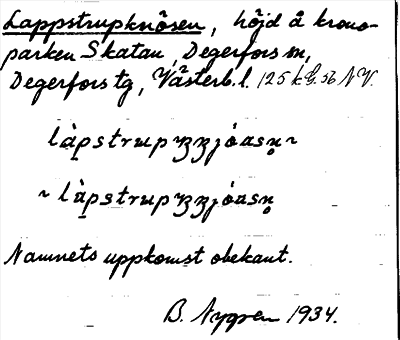 Lappstrupknösen, höjd å krono-
parken Skatan, Degerfors sn,
Degerfors tg, Västerb. l. 125 k
låpstrup
~ låpstrup
Namnets uppkomst obekant.
B. Nygren 1934.